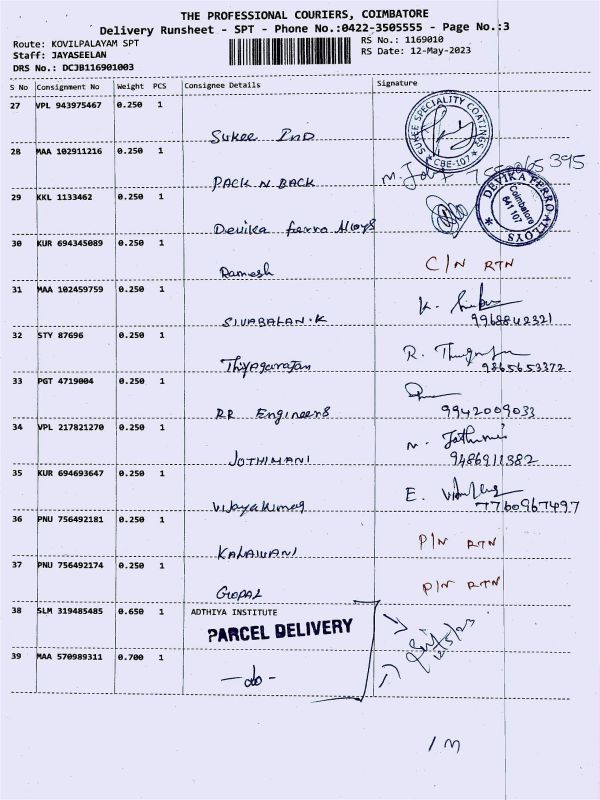 THE PROFESSIONAL COURIERS, COIMBATORE
Delivery Runsheet - SPT - Phone No.:0422-3505555 - Page No.:3
Route: KOVILPALAYAM SPT RS No.: 1169010
Staff: JAYASEELAN RS Date: 12-May-2023
DRS No.: DCJB116901003
S No Consignment No Weight PCS Consignee Details Signature
27 VPL 943975467 0.250 1
Sukee IND
SUKEE SPECIALITY COATINGS
* CBE-107 *
28 MAA 102911216 0.250 1
PACK N BACK
29 KKL 1133462 0.250 1
Devika ferro Alloys
DEVIKA FERRO ALLOYS
Coimbatore
641 107
30 KUR 694345089 0.250 1
Ramesh C/N RTN
31 MAA 102459759 0.250 1
SIVABALAN.K K.
9968842321
32 STY 87696 0.250 1
Thiyagarajan R.
9865653372
33 PGT 4719004 0.250 1
RR Engineers 9942009033
34 VPL 217821270 0.250 1
JOTHIMANI
9486911382
35 KUR 694693647 0.250 1
Vijayakumar E.
7760967497
36 PNU 756492181 0.250 1
KALAIVANI P/N RTN
37 PNU 756492174 0.250 1
GOPAL P/N RTN
38 SLM 319485485 0.650 1 ADTHIYA INSTITUTE
PARCEL DELIVERY
12/5/23
39 MAA 570989311 0.700 1
-do-